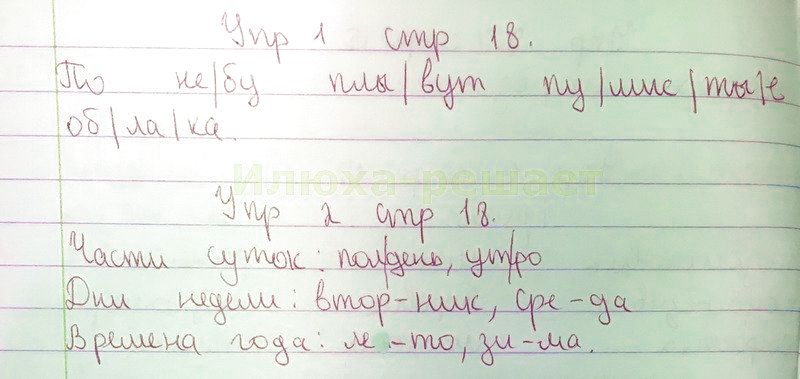 Упр 1 стр 18.
По не/бу плы/вут пу/шис/ты/е
об/ла/ка.
Илюха-решает
Упр 2 стр 18.
Части суток: пол/день, ут/ро
Дни недели: втор-ник, сре-да
Времена года: ле-то, зи-ма.